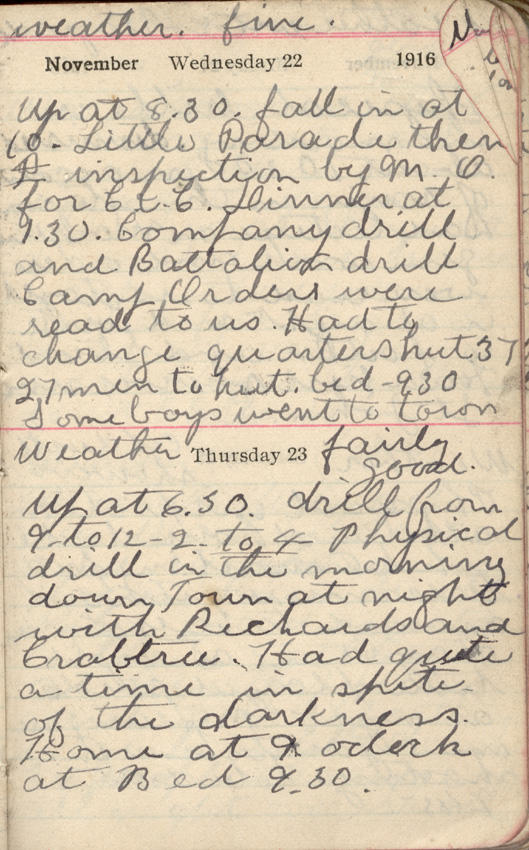 weather. fine.
November Wednesday 22 1916
Up at 8.30. fall in at
10 - Little Parade then
inspection by M. O.
for C. E. C. Dinner at
1.30. Company drill
and Battalion drill
Camp Orders were
read to us. Had to
change quarters hut 37
27 men to hut. bed - 930
Some boys went to town
Weather Thursday 23 fairly
good.
Up at 6.30. drill from
9 - to 12 - 2 - to 4 Physical
drill in the morning
down Town at night
with Richards and
Crabtree. Had quite
a time in spite
of the darkness.
Home at 9. oclock
at Bed 9.30.